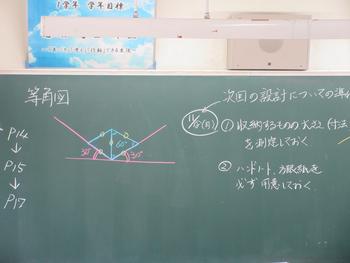 1学年 学年目標
等角図
次回の設計についての準
P14
↓
P15
↓
P17
30°
60°
30°
11/5(月)
① 収納するものの大きさ(寸法)
を測定しておく
② ハンドノート、方眼紙を
必ず用意しておく